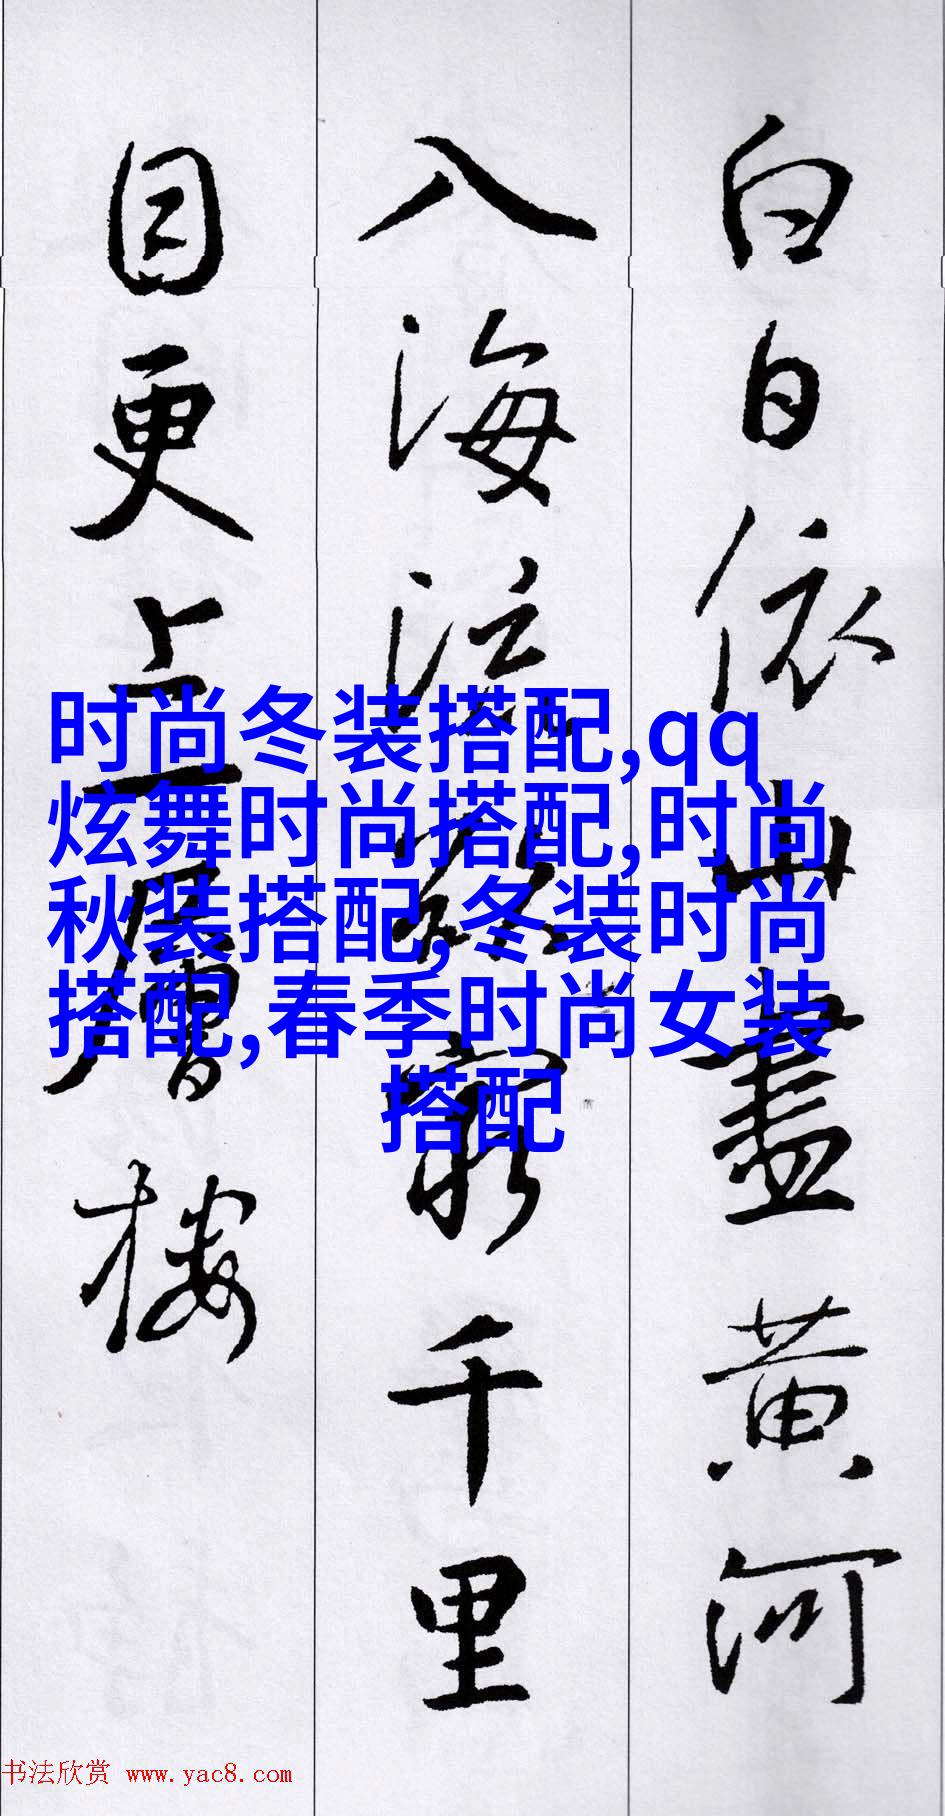 白日依山盡黄河
入海流欲窮千里
目更上一層樓
时尚冬装搭配,qq
炫舞时尚搭配,时尚
秋装搭配,冬装时尚
搭配,春季时尚女装
搭配
书法欣赏 www.yac8.com